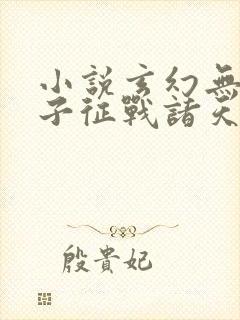 小説玄幻無
子征戰諸天
殷貴妃